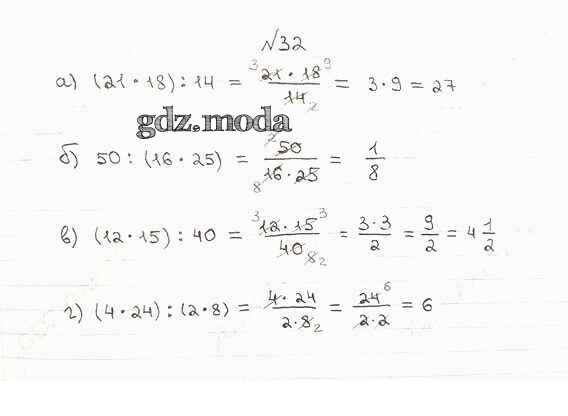 №32
а) (21 · 18) : 14 = ³21 · 18⁹ / 14₂ = 3 · 9 = 27
gdz.moda
б) 50 : (16 · 25) = ²50 / ₈16 · 25 = 1/8
в) (12 · 15) : 40 = ³12 · 15³ / 40₈₂ = 3·3/2 = 9/2 = 4 1/2
г) (4 · 24) : (2 · 8) = 4 · 24 / 2 · 8₂ = 24⁶ / 2 · 2 = 6